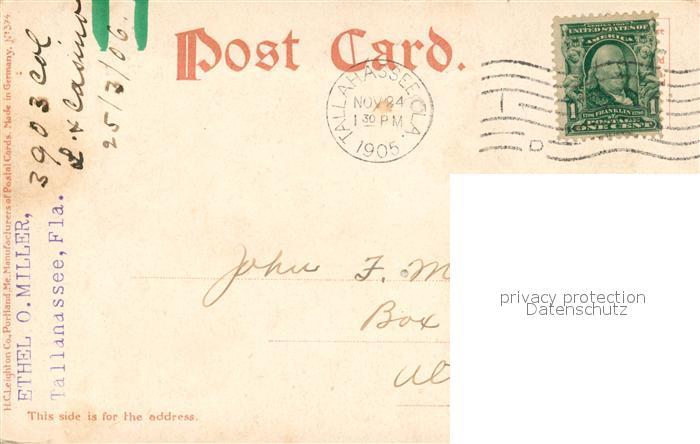 Post Card.
SERIES 1902
UNITED STATES OF
AMERICA
1 1
1706 FRANKLIN 1790
POSTAGE
ONE CENT
TALLAHASSEE, FLA.
NOV 24
1 30 PM
1905
D
privacy protection
Datenschutz
John F. M
Box
This side is for the address.
H.C. Leighton Co., Portland, Me. Manufacturers of Postal Cards. Made in Germany. Nº 374
ETHEL O. MILLER,
Tallanassee, Fla.
3903 Col
25/3/06.